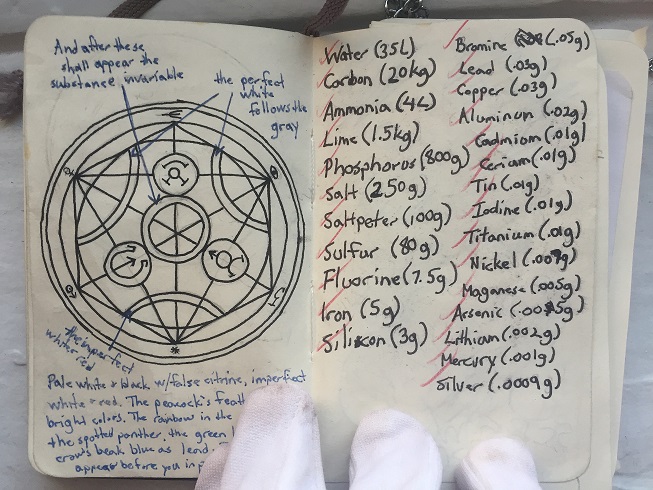 And after these
shall appear the
substance invariable
the perfect
white
follows the
gray
the imperfect
white red
Pale white & black w/false citrine, imperfect
white & red. The peacock's feath
bright colors. The rainbow in the
the spotted panther, the green l
crow's beak blue as lead.
appear before you in p
Water (35L)
Carbon (20kg)
Ammonia (4L)
Lime (1.5kg)
Phosphorus (800g)
Salt (250g)
Saltpeter (100g)
Sulfur (80g)
Fluorine (7.5g)
Iron (5g)
Silicon (3g)
Bromine (.05g)
Lead (.03g)
Copper (.03g)
Aluminum (.02g)
Cadmium (.01g)
Cerium (.01g)
Tin (.01g)
Iodine (.01g)
Titanium (.01g)
Nickel (.009g)
Maganese (.005g)
Arsenic
Lithium (.002g)
Mercury (.001g)
Silver (.0009g)